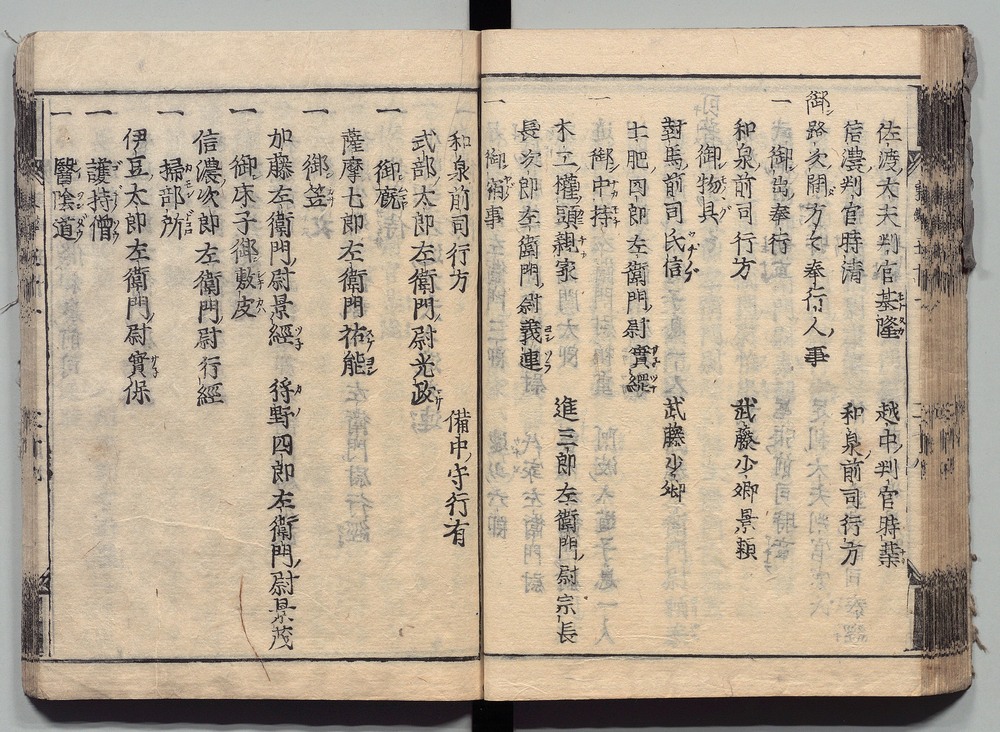 佐渡大夫判官基隆　越中判官時業
信濃判官時清　和泉前司行方
御路次間方々奉行人事
一　御出奉行
和泉前司行方　武藤少卿景頼
一　御物具
對馬前司氏信　武藤少卿
土肥四郎左衛門尉實綱
一　御中持
木工權頭親家　進三郎左衛門尉宗長
長次郎左衛門尉義連
一　御事
和泉前司行方　備中守行有
式部太郎左衛門尉光政
一　御廐
薩摩七郎左衛門祐能
一　御笠
加藤左衛門尉景經　狩野四郎左衛門尉景茂
一　御床子御敷皮
信濃次郎左衛門尉行經
一　掃部所
伊豆太郎左衛門尉實保
一　護持僧
一　醫陰道